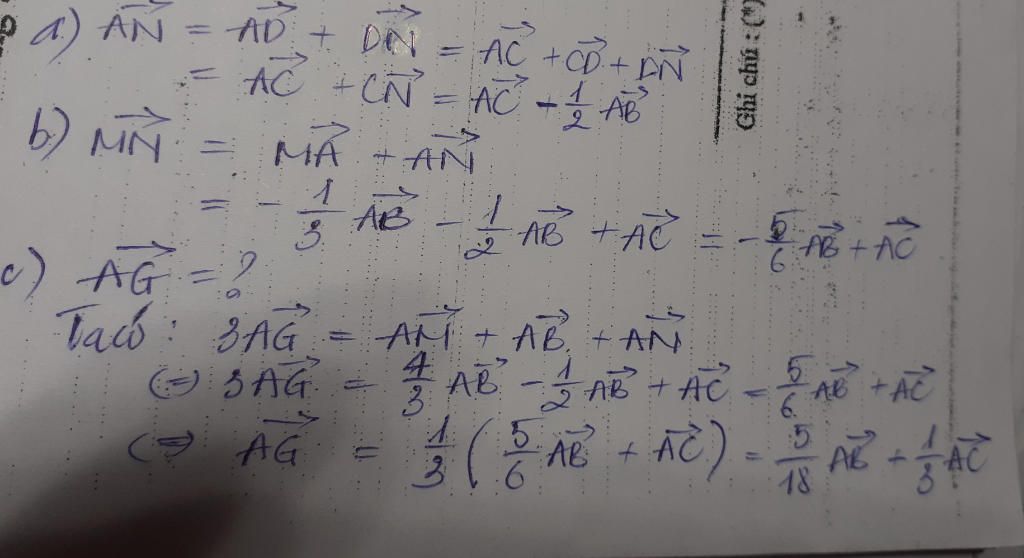 a) AN→ = AD→ + DN→ = AC→ + CD→ + DN→
= AC→ + CN→ = AC→ - 1/2 AB→
b) MN→ = MA→ + AN→
= - 1/3 AB→ - 1/2 AB→ + AC→ = - 5/6 AB→ + AC→
c) AG→ = ?
Ta có : 3AG→ = AM→ + AB→ + AN→
(=) 3AG→ = 4/3 AB→ - 1/2 AB→ + AC→ = 5/6 AB→ + AC→
(=) AG→ = 1/3 ( 5/6 AB→ + AC→ ) = 5/18 AB→ + 1/3 AC→
Ghi chú : (*)